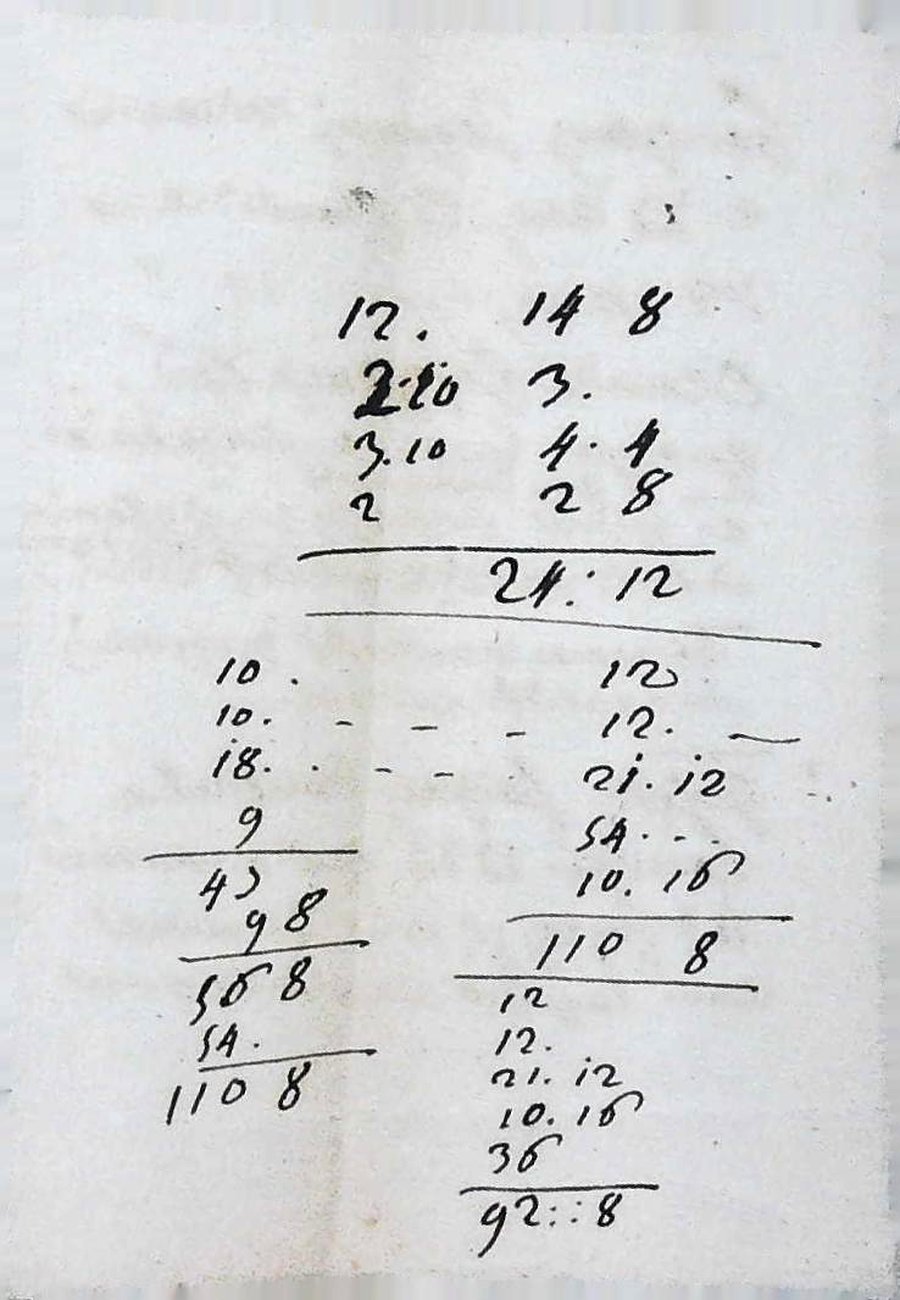 12. 14 8
2.10 3.
3.10 4. 4
2 2 8
24: 12
10. 12
10. - - - 12. —
18. . - - . 21. 12
9 54. - .
47 10. 16
9 8 110 8
56 8 12
54. 12.
110 8 21. 12
10. 16
36
92::8